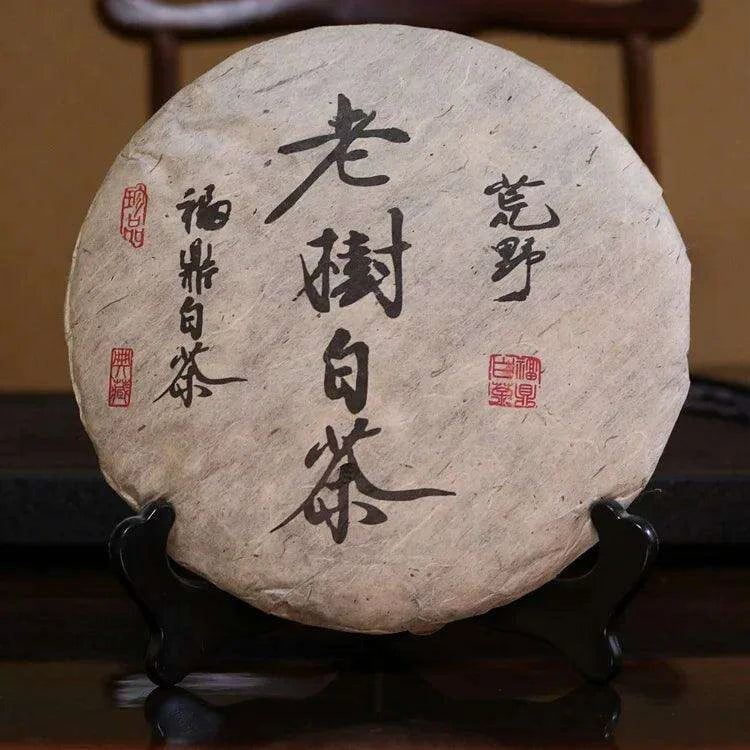 荒野
福鼎白茶
老樹白茶
福鼎白茶
珍品
典藏